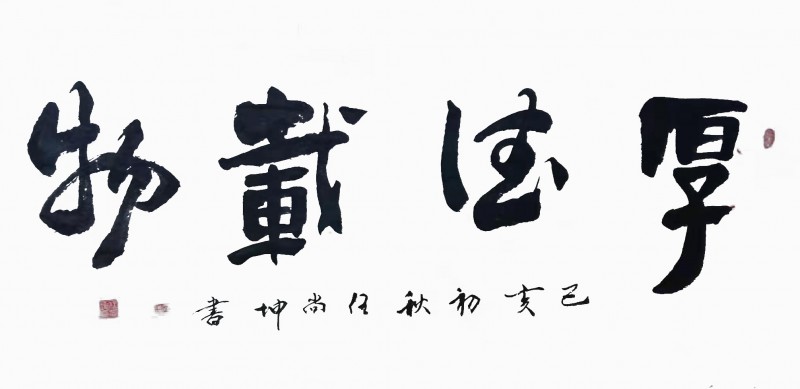 厚德載物
己亥初秋任尚坤書